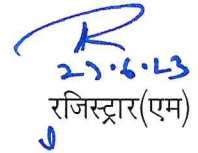 27.6.23
रजिस्ट्रार(एम)